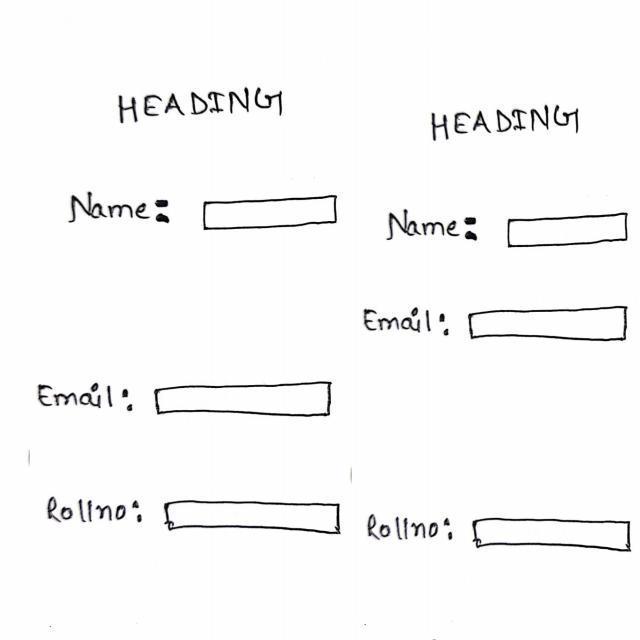 HEADING
Name:
Email:
Rollno:
HEADING
Name:
Email:
Rollno: